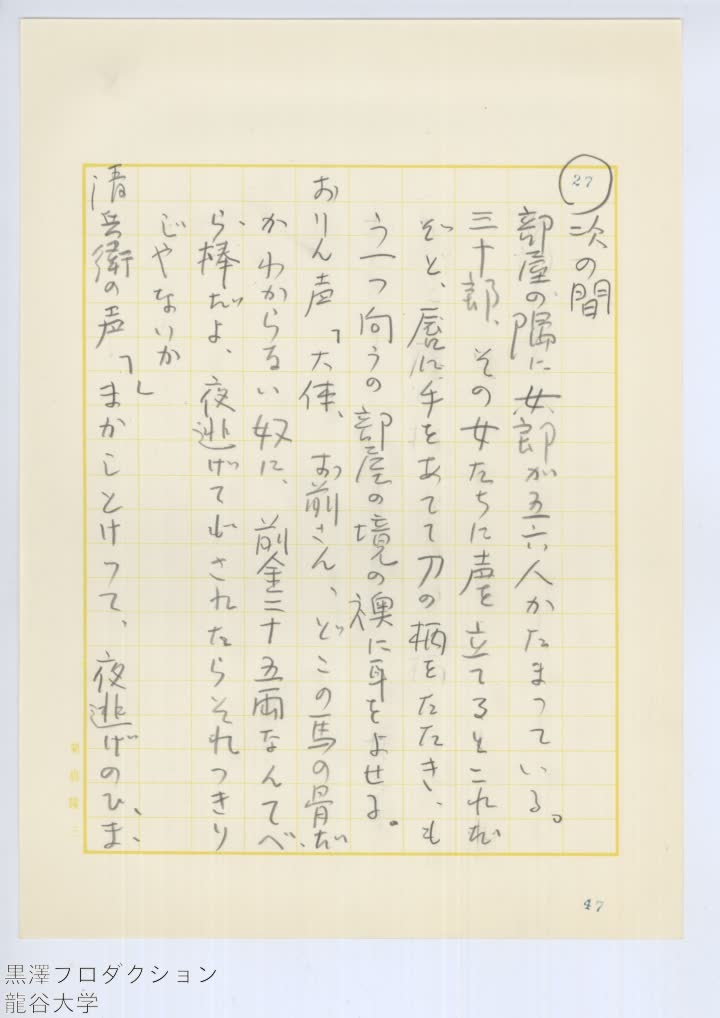 27
次の間
部屋の隅に女郎が五六人かたまっている。
三十郎、その女たちに声を立てるとこれだ
ぞと、唇に手をあてて刀の柄をたたき、も
う一つ向うの部屋の境の襖に耳をよせる。
おりん声「大体、お前さん、どこの馬の骨だ
かわからない奴に、前金二十五両なんてべ
ら棒だよ、夜逃げでもされたらそれっきり
じゃないか」
清兵衛の声「まかしとけって、夜逃げのひま、
47
黒澤プロダクション
龍谷大学